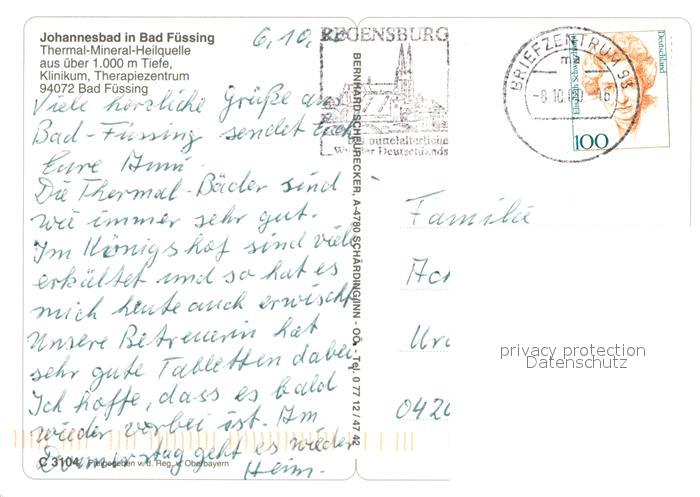 Johannesbad in Bad Füssing
Thermal-Mineral-Heilquelle
aus über 1.000 m Tiefe,
Klinikum, Therapiezentrum
94072 Bad Füssing
6.10.
Viele herzliche Grüße aus
Bad-Füssing sendet Euch
Eure Anni.
Die Thermal-Bäder sind
wie immer sehr gut.
Im Königshof sind viele
erkältet und so hat es
mich heute auch erwischt
Unsere Betreuerin hat
sehr gute Tabletten dabei
Ich hoffe, dass es bald
wieder vorbei ist. Am
Donnerstag geht es wieder
Heim.
C 3104 Freigegeben v. d. Reg. v. Oberbayern
BERNHARD SCHEURECKER, A-4780 SCHÄRDING/INN - OÖ. - Tel. 0 77 12 / 47 42
REGENSBURG
mittelalterliche
Wunder Deutschlands
BRIEFZENTRUM 93
ma
-8.10.
Deutschland
100
Familie
Ach
Ura
0420
privacy protection
Datenschutz